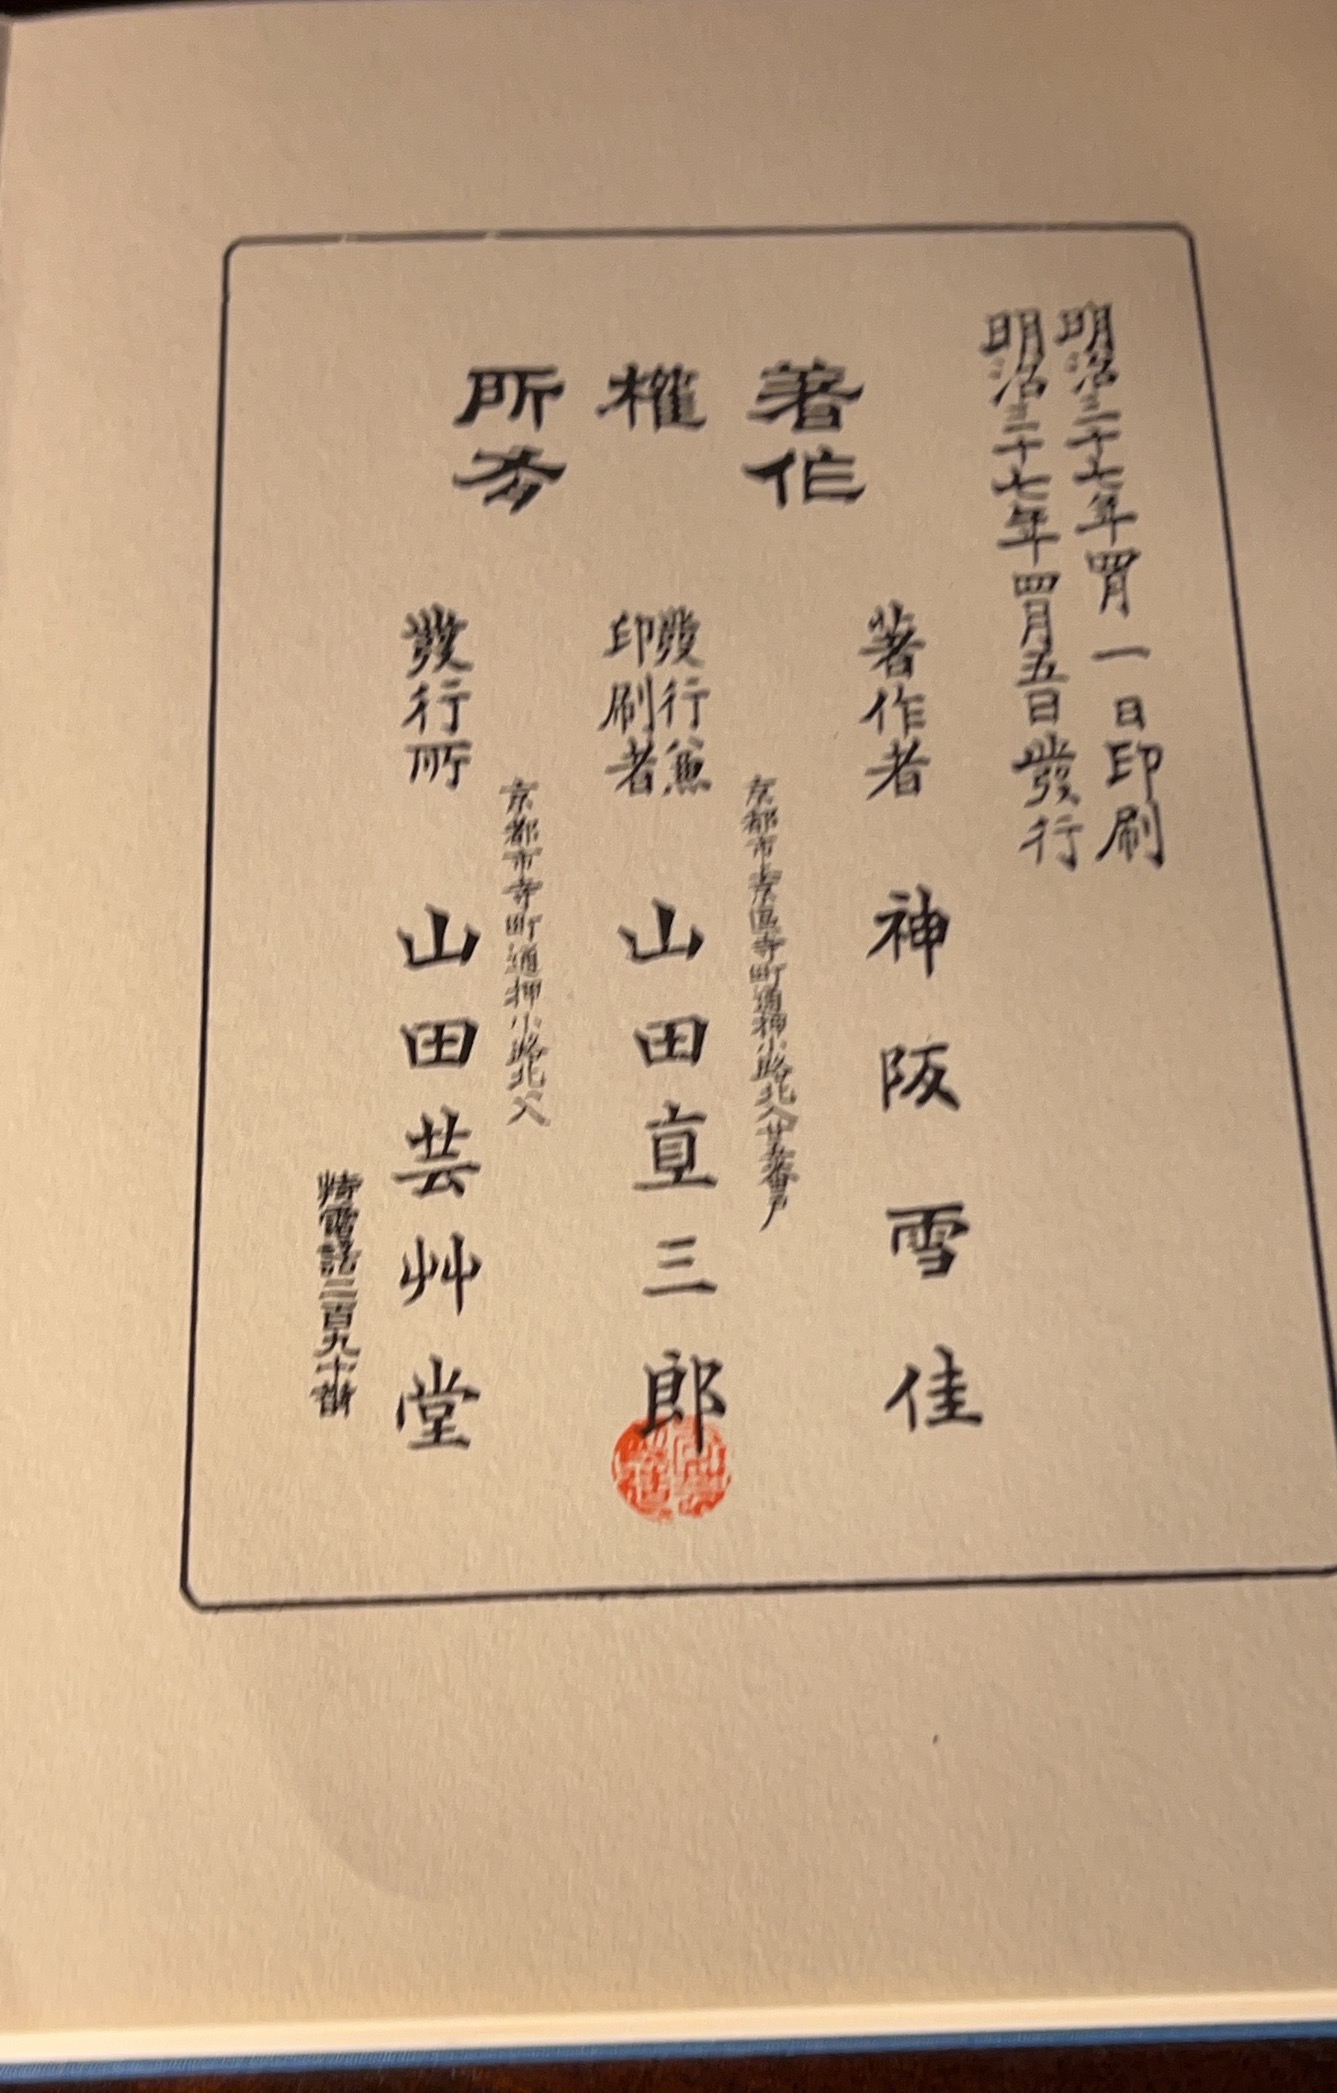 明治三十七年四月一日印刷
明治三十七年四月五日發行
著作
權
所有
著作者　神阪雪佳
京都市上京區寺町通押小路北入廿五番戶
發行兼
印刷者　山田直三郎
京都市寺町通押小路北入
發行所　山田芸艸堂
電話二百九十番